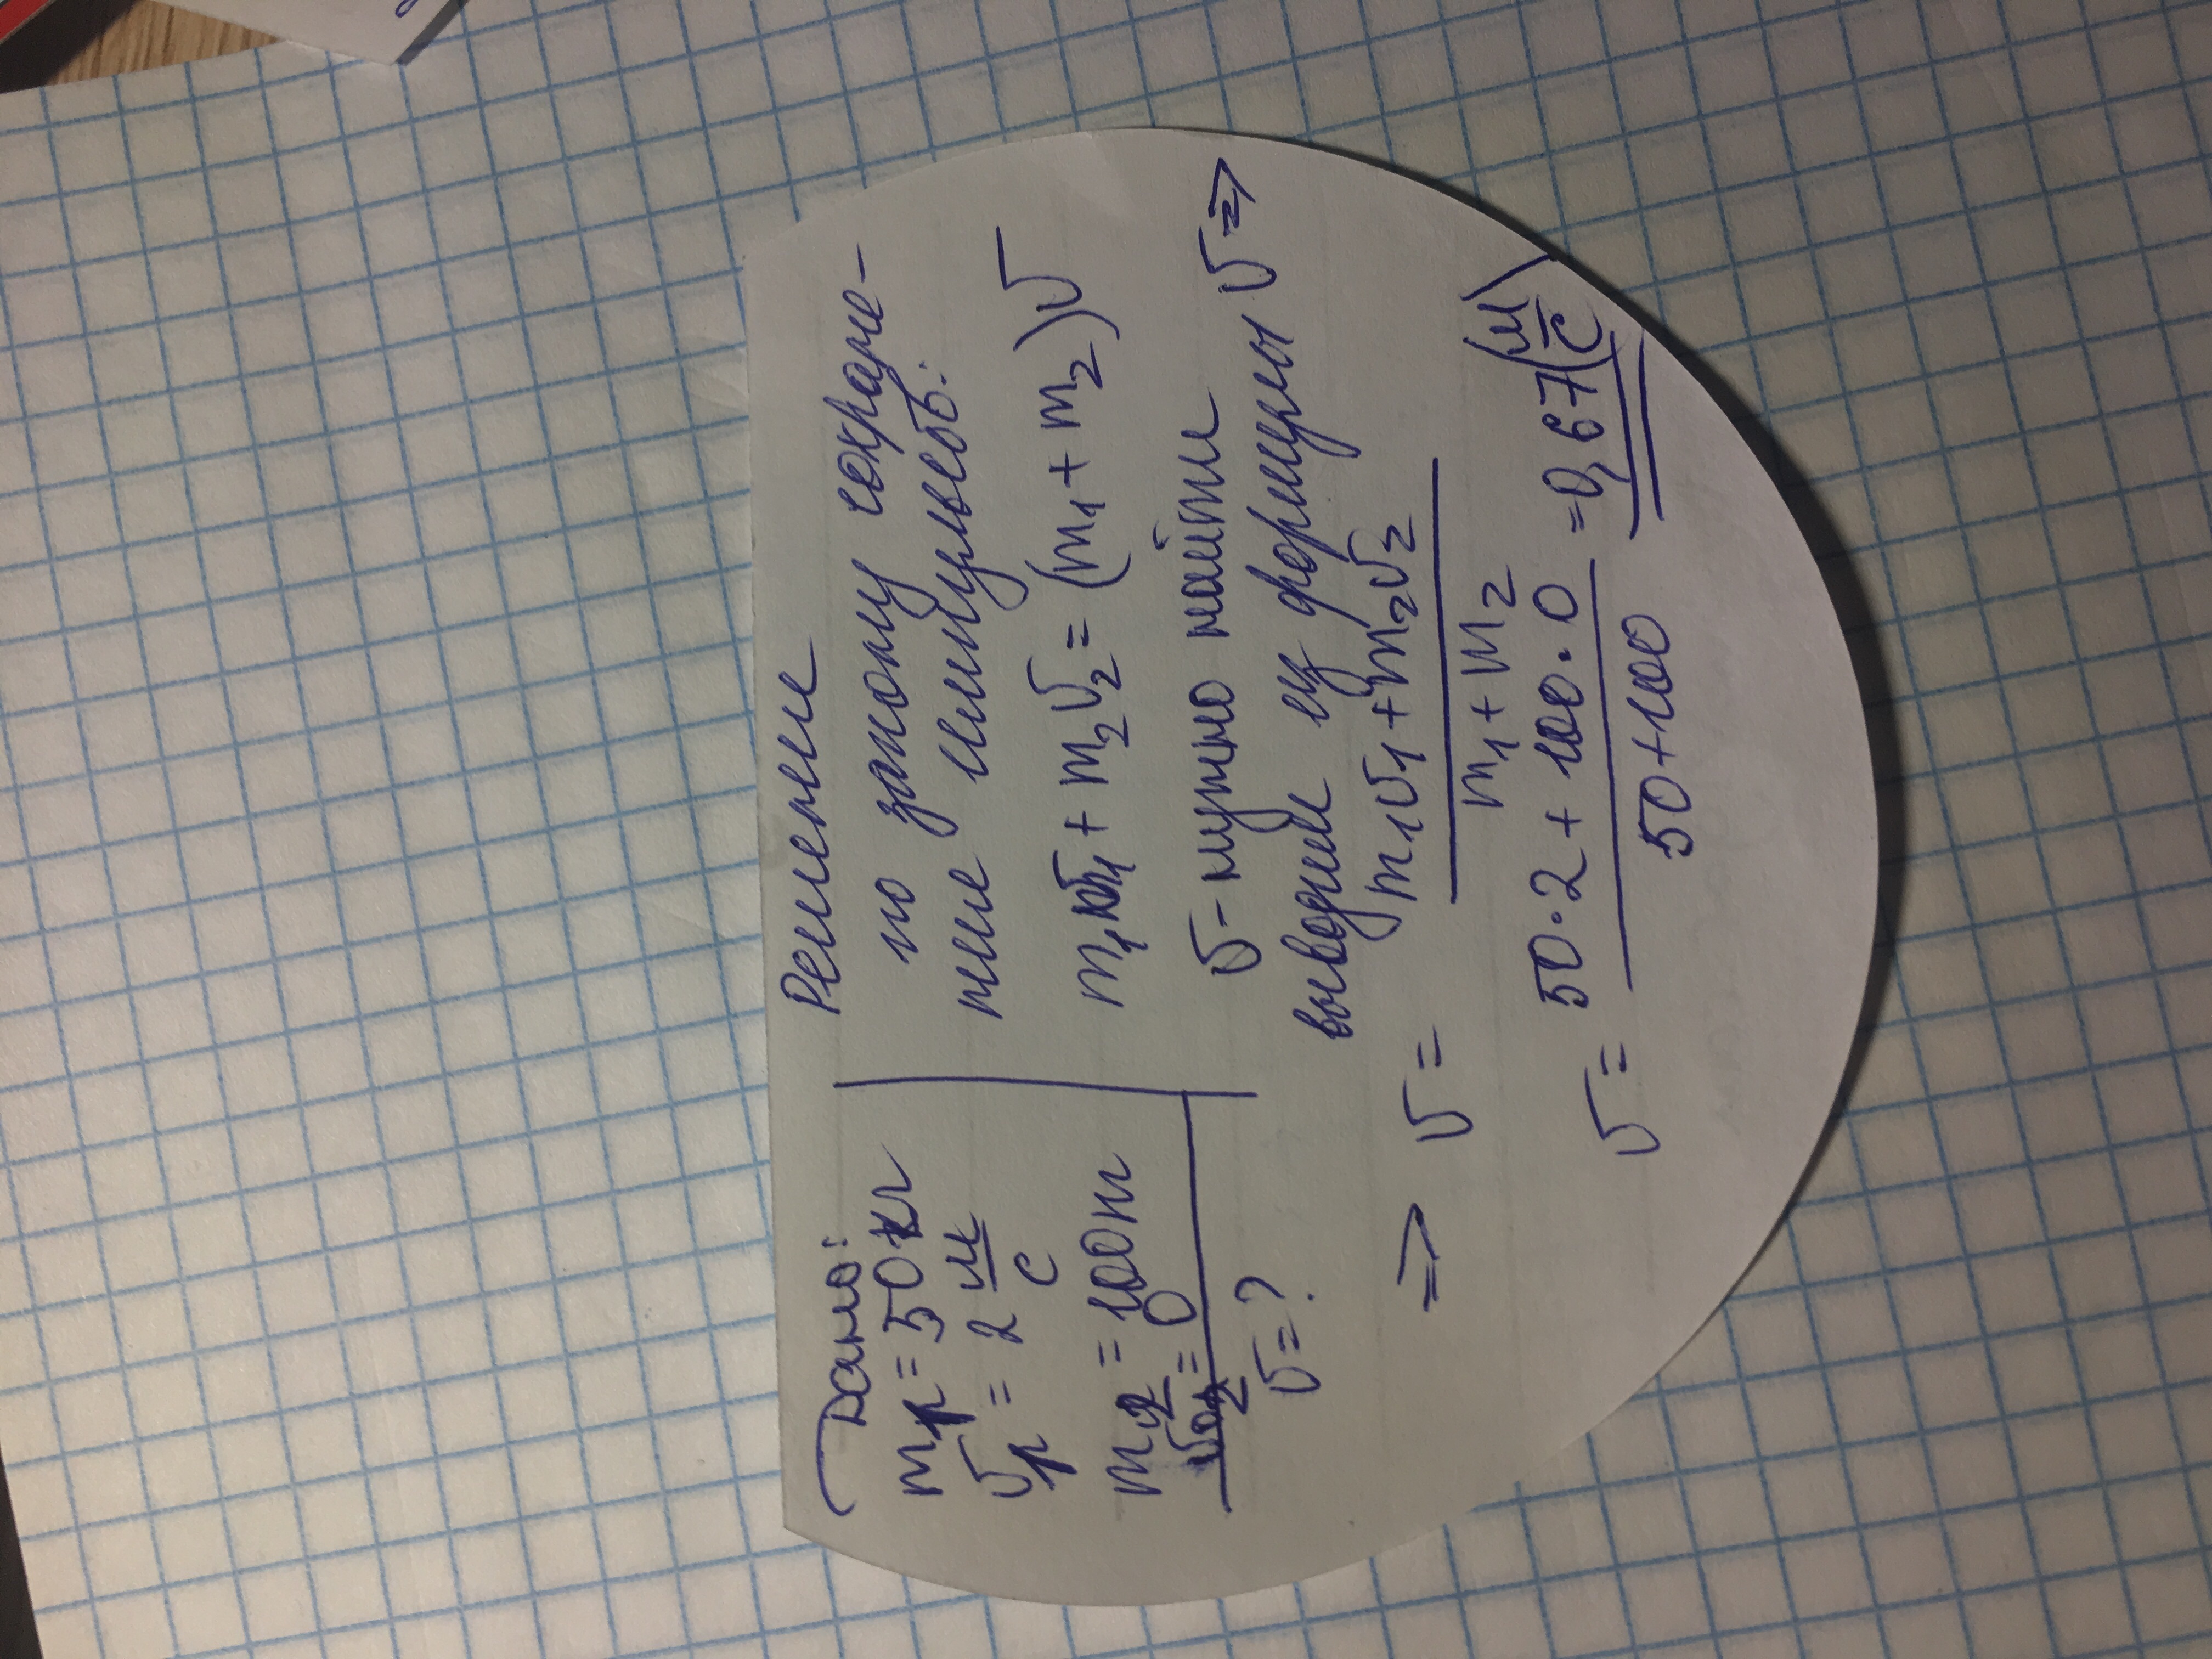 Дано:
m₁ = 50кг
υ₁ = 2 м/с
m₂ = 100т
υ₂ = 0
υ = ?
Решение
по закону сохране-
ние импульсов:
m₁υ₁ + m₂υ₂ = (m₁ + m₂)υ
υ - нужно найти
выводим из формулы υ ⇒
⇒ υ = (m₁υ₁ + m₂υ₂) / (m₁ + m₂)
υ = (50·2 + 100·0) / (50 + 100) = 0,67 (м/с)